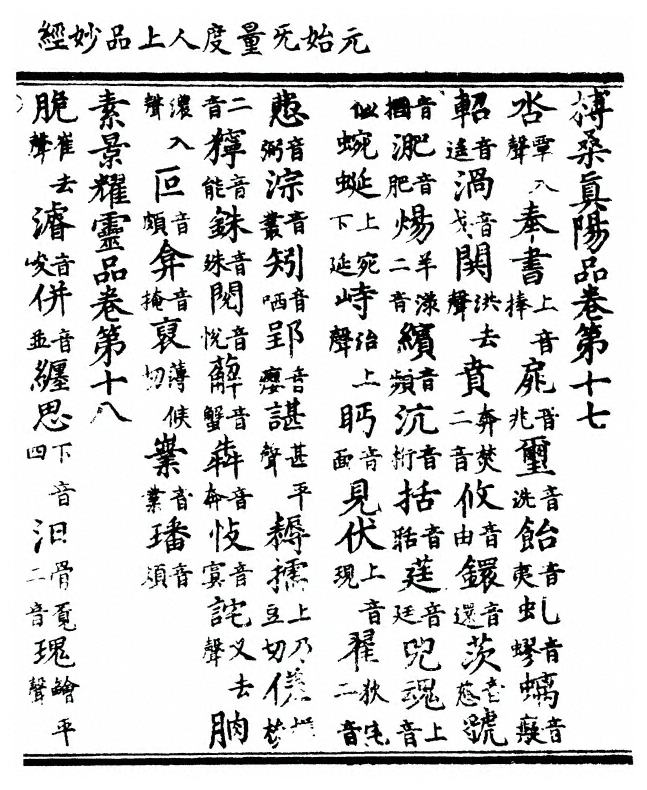 元始旡量度人上品妙經
搏桑真陽品卷第十七
沓覃入聲奉書上音捧扉音兆璽音洗飴音夷虬音蟉螭音癡
軺音遙渦音戈闋洪去聲賁奔焚二音攸音由鐶音還茨音慈號
音摑淝音肥煬羊漾二音繽音頻沆音衍括音聒莛音廷兜魂上音
似蜿蜒上宛下延峙治上聲眄音面見伏上音現翟狄宅二音
怱音粥淙音叢矧音哂郢音癭諶甚平聲耨擩上乃豆切
二音獰音能銖音殊閱音悅薢音蟹犇音奔忮音寘詫义去聲朒
濃入聲叵音頗弇音掩裒薄候切業音業璠音煩
素景耀靈品卷第十八
脆崔去聲濬音峻併音並纏思下音四汩骨覓二音瑰鱠平聲